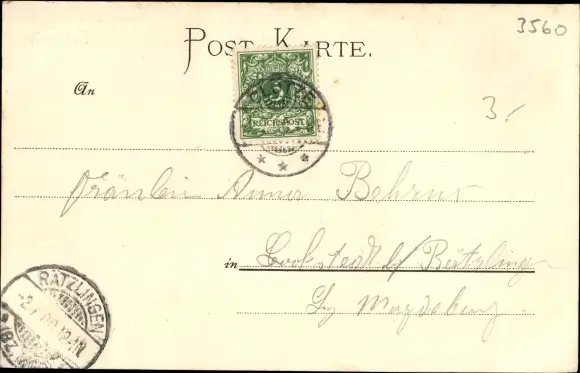 3560
POST KARTE.
An
3.-
5
REICHSPOST
Fräulein Anna Behrens
in Lockstedt b/ Rätzlingen
Bz Magdeburg
RÄTZLINGEN